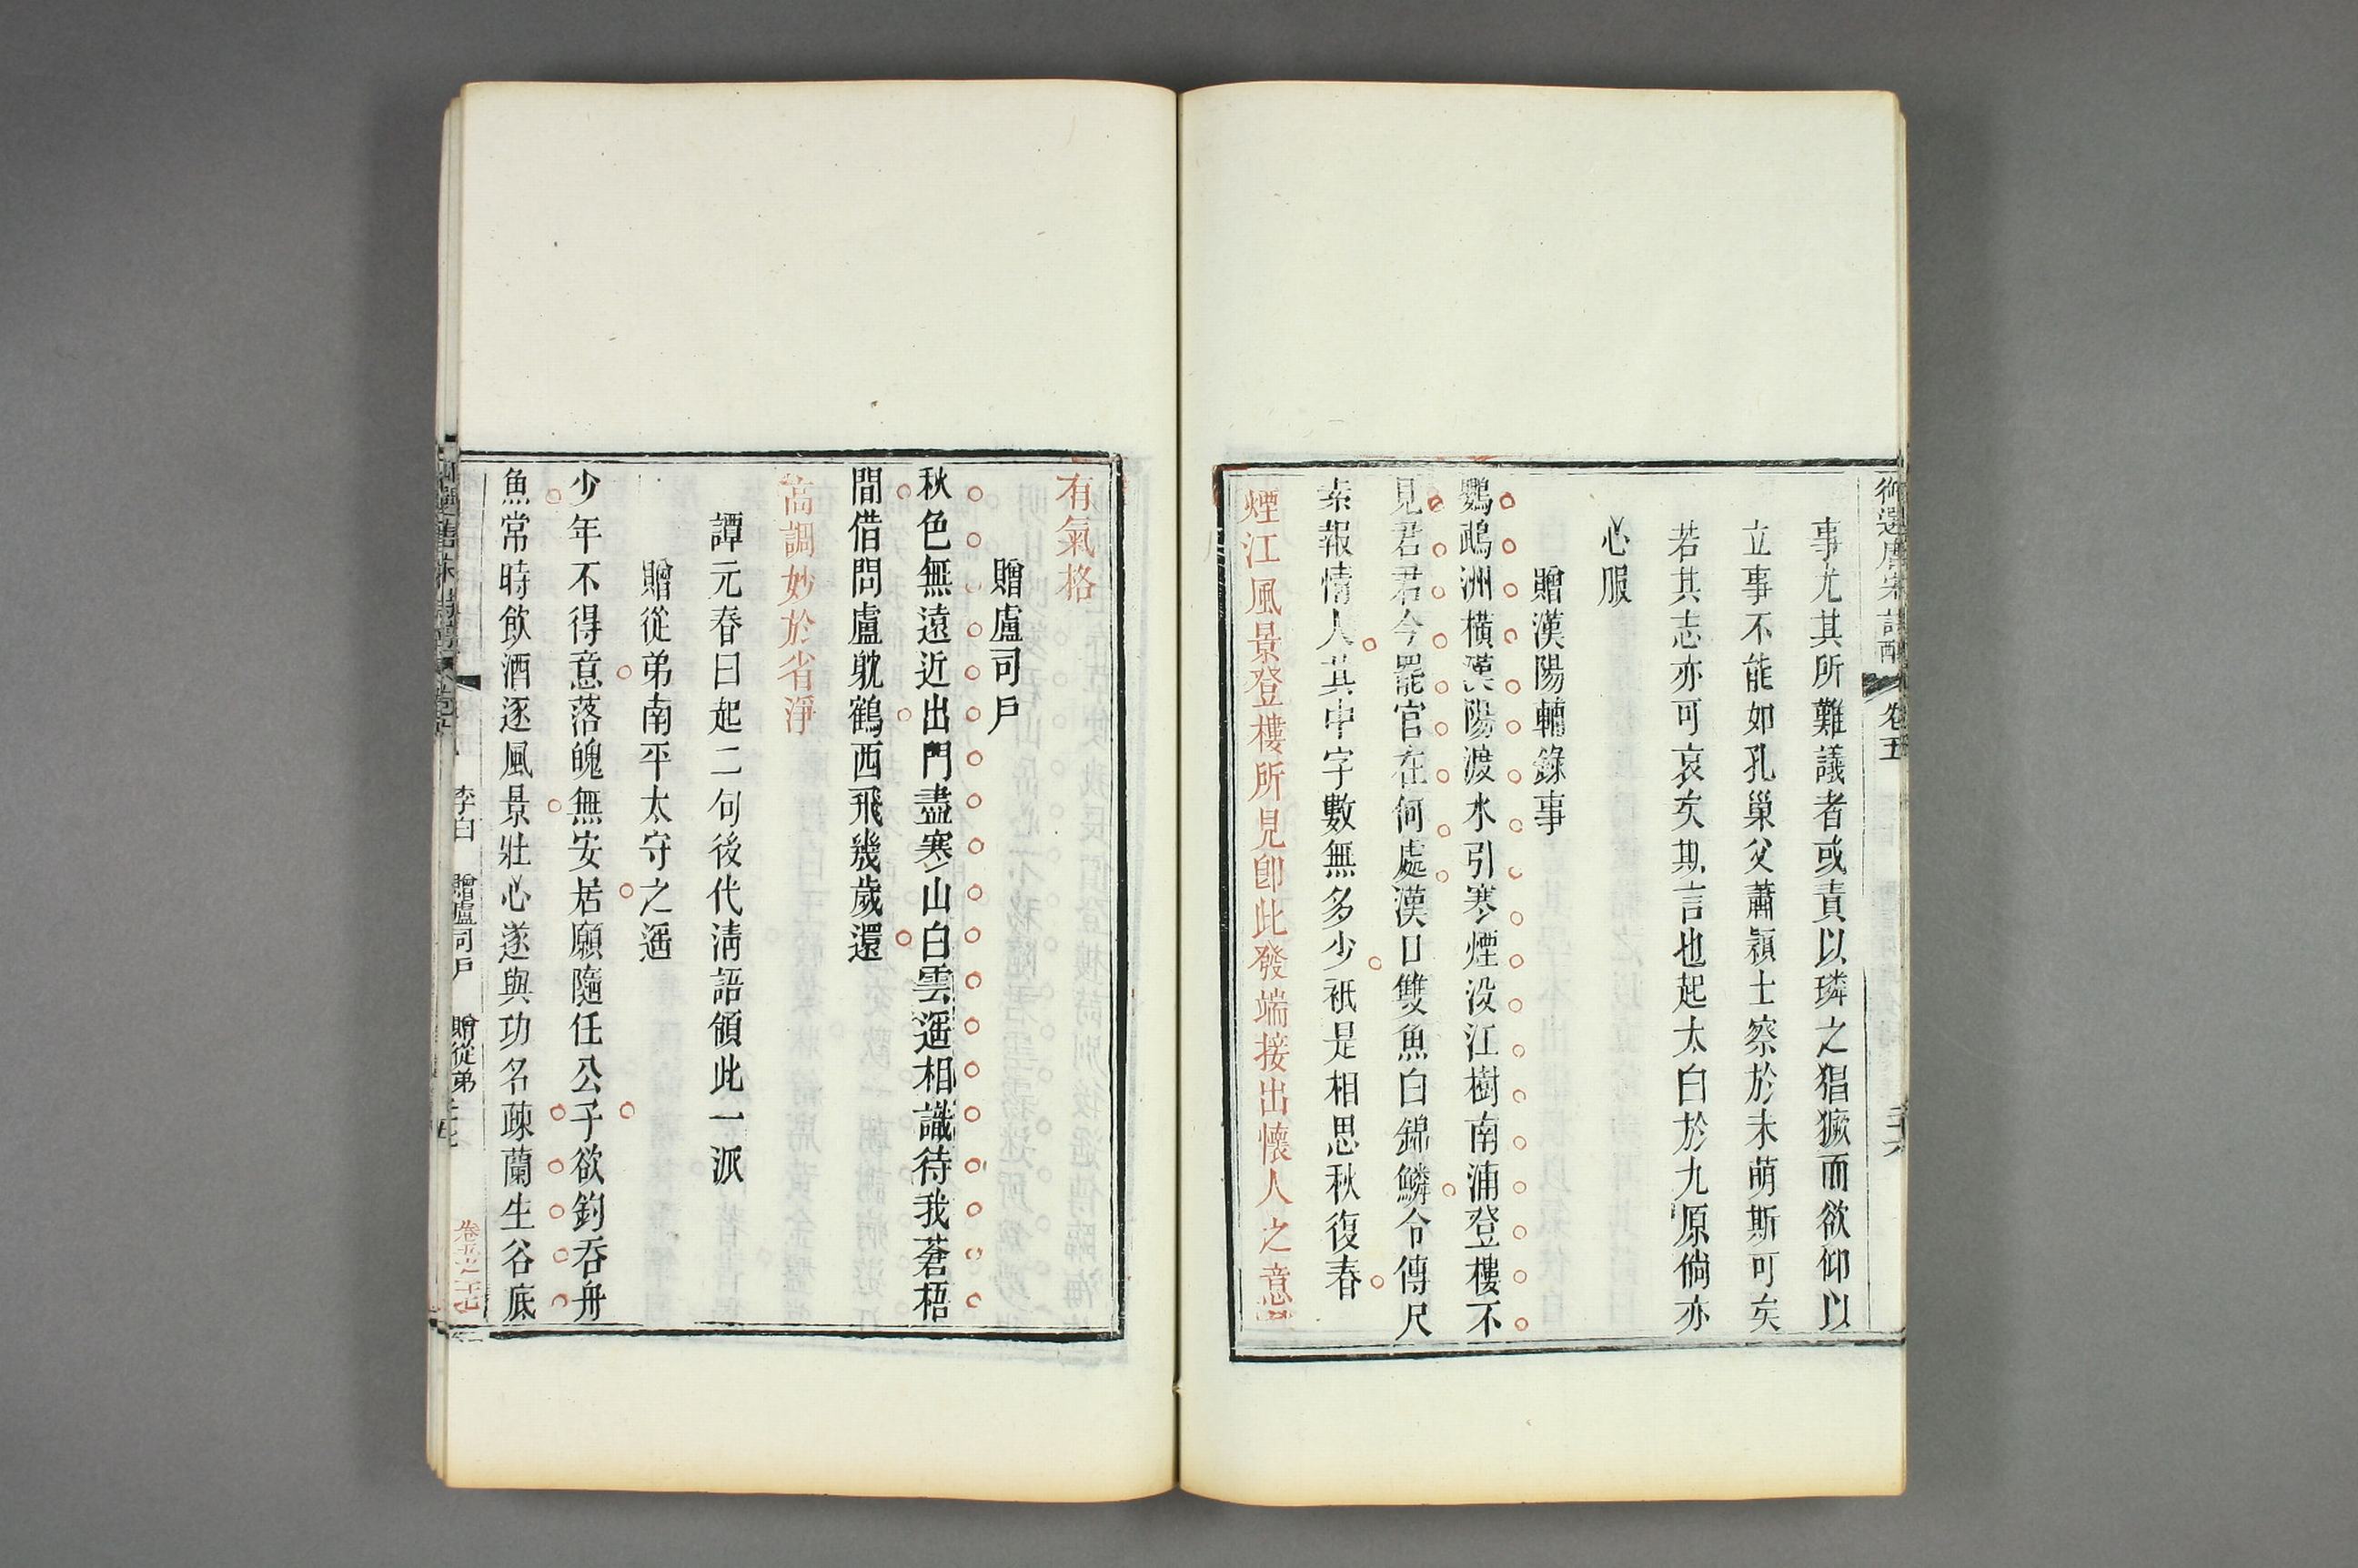 御選唐宋詩醇 卷五 二十六
事尤其所難議者或責以璘之猖獗而欲仰以
立事不能如孔巢父蕭潁士察於未萌斯可矣
若其志亦可哀矣斯言也起太白於九原倘亦
心服
贈漢陽輔錄事
鸚鵡洲橫漢陽渡水引寒煙没江樹南浦登樓不
見君君今罷官在何處漢口雙魚白錦鱗令傳尺
素報情人其中字數無多少祇是相思秋復春
煙江風景登樓所見卽此發端接出懷人之意
有氣格
贈盧司戶
秋色無遠近出門盡寒山白雲遥相識待我蒼梧
間借問盧躭鶴西飛幾歲還
高調妙於省淨
譚元春曰起二句後代清語領此一派
贈從弟南平太守之遥
少年不得意落魄無安居願隨任公子欲釣吞舟
魚常時飲酒逐風景壯心遂與功名疎蘭生谷底
李白 贈盧司戶 贈從弟
卷五之二十七